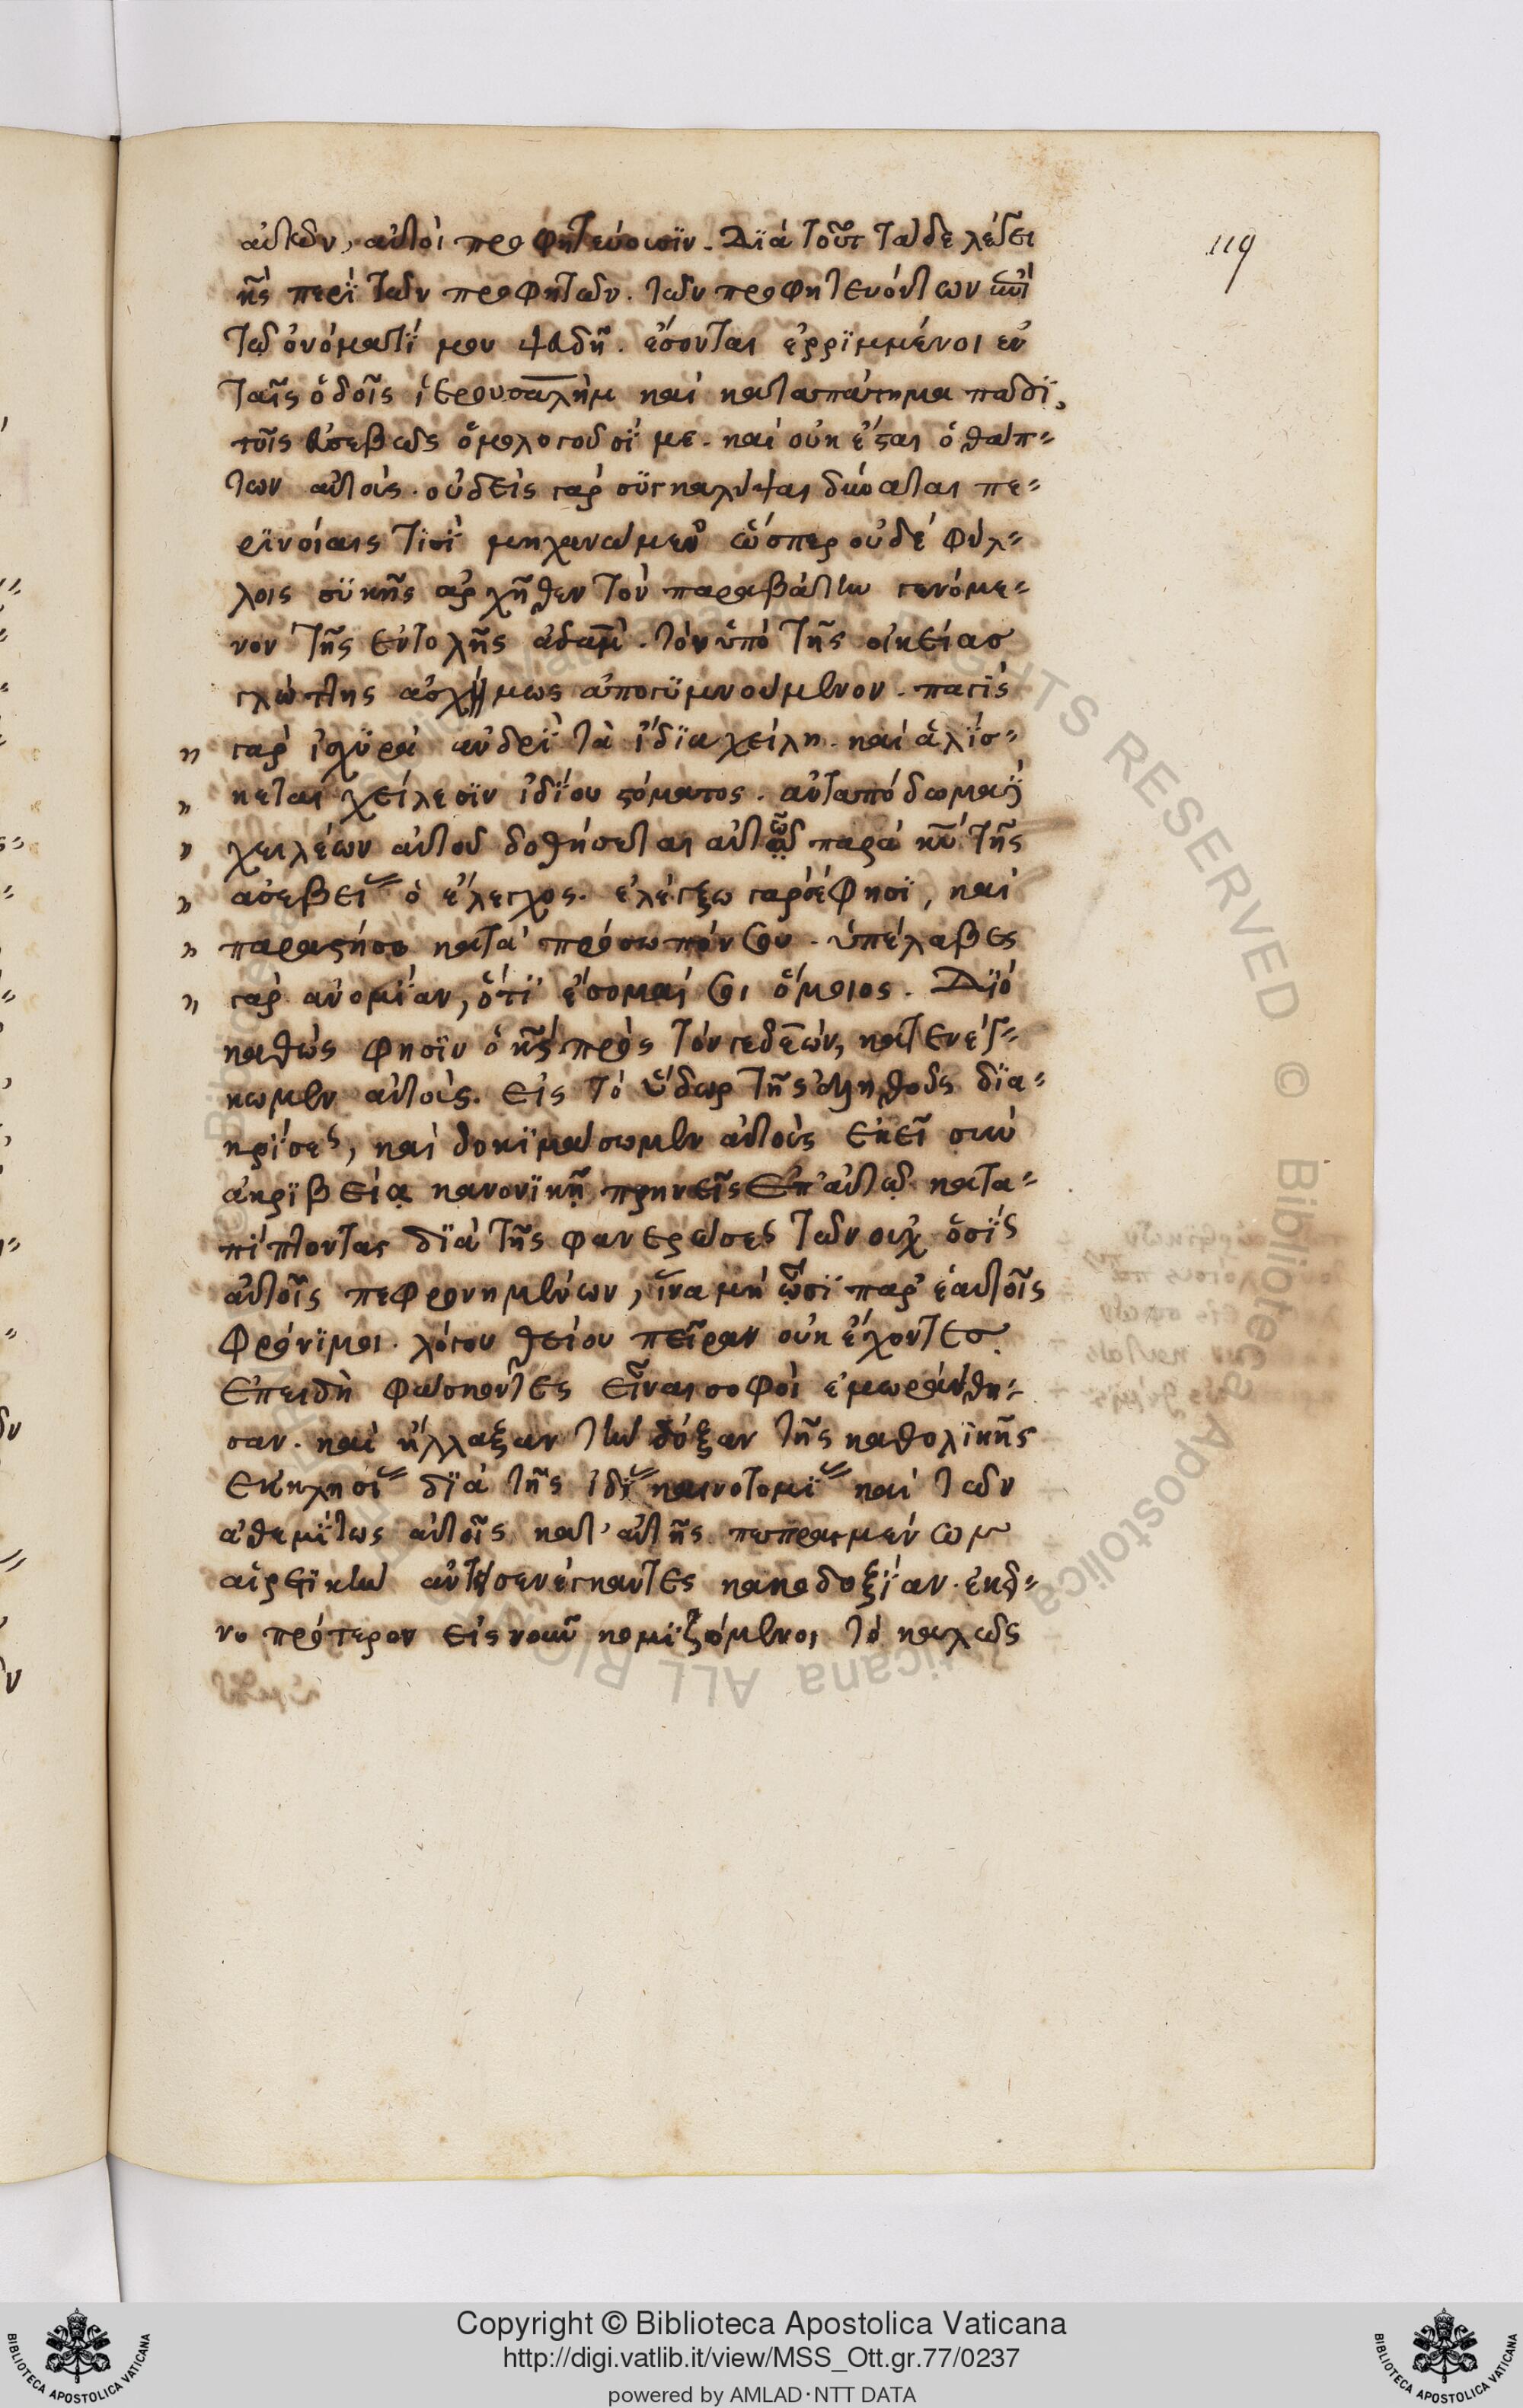 αὐτῶν, αὐτοὶ προφητεύουσϊν. Διὰ τοῦτ τάδε λέγει
119
κ̅ς̅ περὶ τῶν προφητῶν. τῶν προφητευόντων ἐπὶ
τῷ ὀνόματί μου ψευδῆ. ἔσονται ἐρρϊμμένοι ἐν
ταῖς ὁδοῖς ἱερουσαλὴμ καὶ καταπάτημα πᾶσϊ
τοῖς εὐσεβῶς ὁμολογοῦσί με. καὶ οὐκ ἔσται ὁ θάπ-
των αὐτούς. οὐδεὶς γὰρ συγκαλύψαι δύναται πε-
ρϊνοίαις τϊσὶ μηχανώμεν ὥσπερ οὐδὲ φύλ-
λοις συκῆς ἀρχῆθεν τὸν παραβάτην γενόμε-
νον τῆς ἐντολῆς ἀδὰμ. τὸν ὑπὸ τῆς οἰκείας
γλώττης ἀσχήμως ἀπογϋμνούμενον. παγὶς
γὰρ ἰσχϋρὰ ἀνδρῒ τὰ ἴδϊα χείλη. καὶ ἁλίσ-
κεται χείλεσϊν ἰδίου στόματος. ἀνταπόδομα
χειλέων αὐτοῦ δοθήσεται αὐτῷ παρὰ κ̅υ̅ τῆς
ἀσεβείας ὁ ἔλεγχος. ἐλέγξω γάρ σέ φησϊ, καὶ
παραστήσω κατὰ πρόσωπόν σου. ὑπέλαβες
γὰρ ἀνομίαν, ὅτϊ ἔσομαί σοι ὅμοιος. Διὸ
καθώς φησϊν ὁ κ̅ς̅ πρὸς τὸν γεδεών, κατενέγ-
κωμεν αὐτούς. εἰς τὸ ὕδωρ τῆς ἀληθοῦς δϊα-
κρίσεως, καὶ δοκϊμάσωμεν αὐτοὺς ἐκεῖ σὺν
ἀκρϊβείᾳ κανονϊκῇ πρηνεῖς ἐπ' αὐτῷ. κατα-
πίπτοντας δϊὰ τῆς φανερώσεως τῶν οὐχ ὁσίως
αὐτοῖς πεφρονημένων, ἵνα μὴ ὦσϊ παρ' ἑαυτοῖς
φρόνϊμοι. λόγου θείου πεῖραν οὐκ ἔχοντες
ἐπειδὴ φάσκοντες εἶναι σοφοὶ ἐμωράνθη-
σαν. καὶ ἤλλαξαν τὴν δόξαν τῆς καθολϊκῆς
ἐκκλησίας δϊὰ τῆς ἰδίας καινοτομίας καὶ τῶν
ἀθεμίτως αὐτοῖς κατ' αὐτῆς πεπραγμένων
αἱρετϊκὴν ἀντεισενέγκαντες κακοδοξίαν.
πρότερον εἰς νοῦν κομϊζόμενοι τὸ καλῶς
Copyright © Biblioteca Apostolica Vaticana
http://digi.vatlib.it/view/MSS_Ott.gr.77/0237
powered by AMLAD·NTT DATA